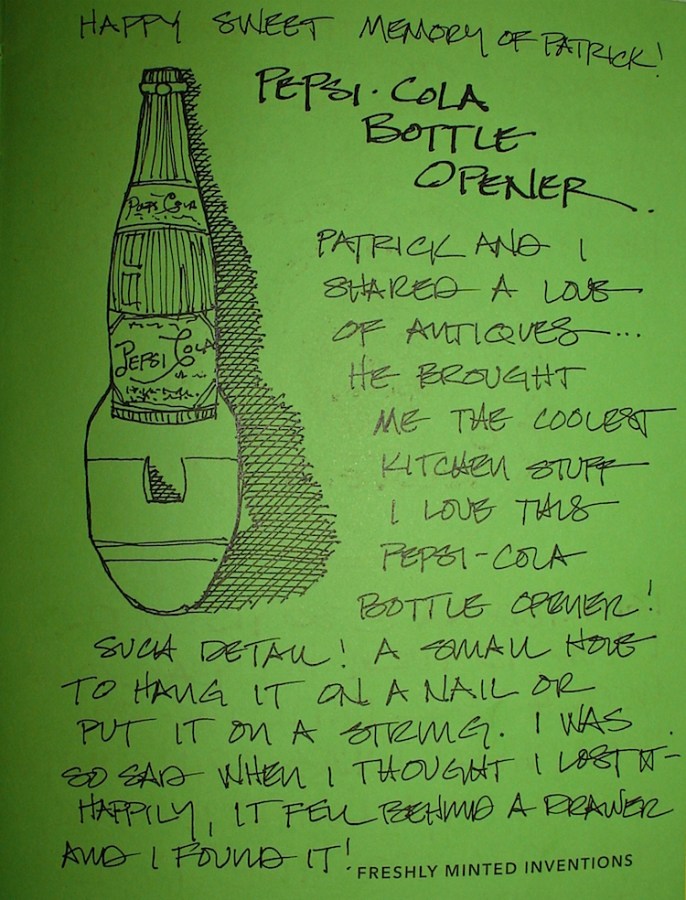 HAPPY SWEET MEMORY OF PATRICK!
PEPSI·COLA
BOTTLE
OPENER.
PEPSI COLA
PEPSI COLA
PATRICK AND I
SHARED A LOVE
OF ANTIQUES...
HE BROUGHT
ME THE COOLEST
KITCHEN STUFF
I LOVE THIS
PEPSI-COLA
BOTTLE OPENER!
SUCH DETAIL! A SMALL HOLE
TO HANG IT ON A NAIL OR
PUT IT ON A STRING. I WAS
SO SAD WHEN I THOUGHT I LOST IT-
HAPPILY, IT FELL BEHIND A DRAWER
AND I FOUND IT!
FRESHLY MINTED INVENTIONS